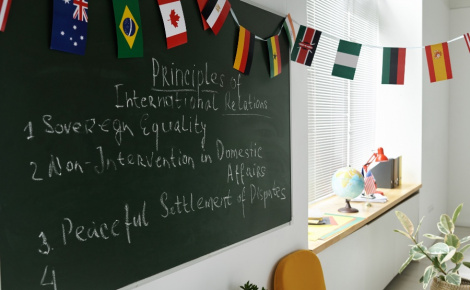 Principles of
International Relations
1 Sovereign Equality
2 Non-Intervention in Domestic
Affairs
3. Peaceful Settlement of Disputes
4